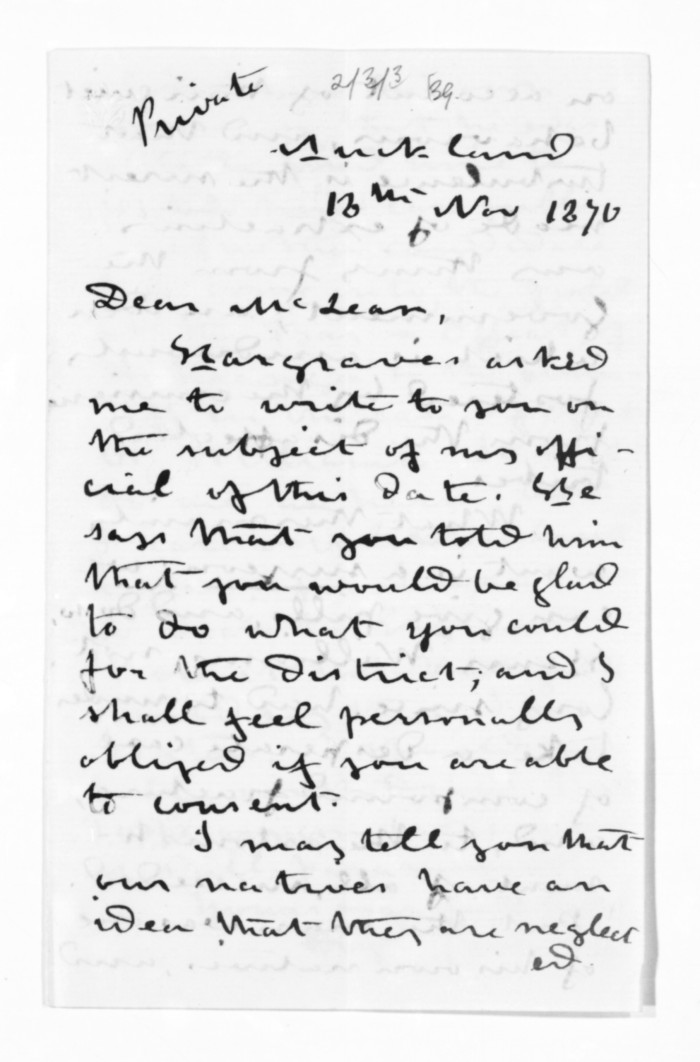 Private
2/3/3 Bg.
Auckland
18th Nov 1870
Dear McLean,
Hargraves asked
me to write to you on
the subject of my offi-
cial of this date. He
says that you told him
that you would be glad
to do what you could
for the district; and I
shall feel personally
obliged if you are able
to consent.
I may tell you that
our natives have an
idea that they are neglect
ed.